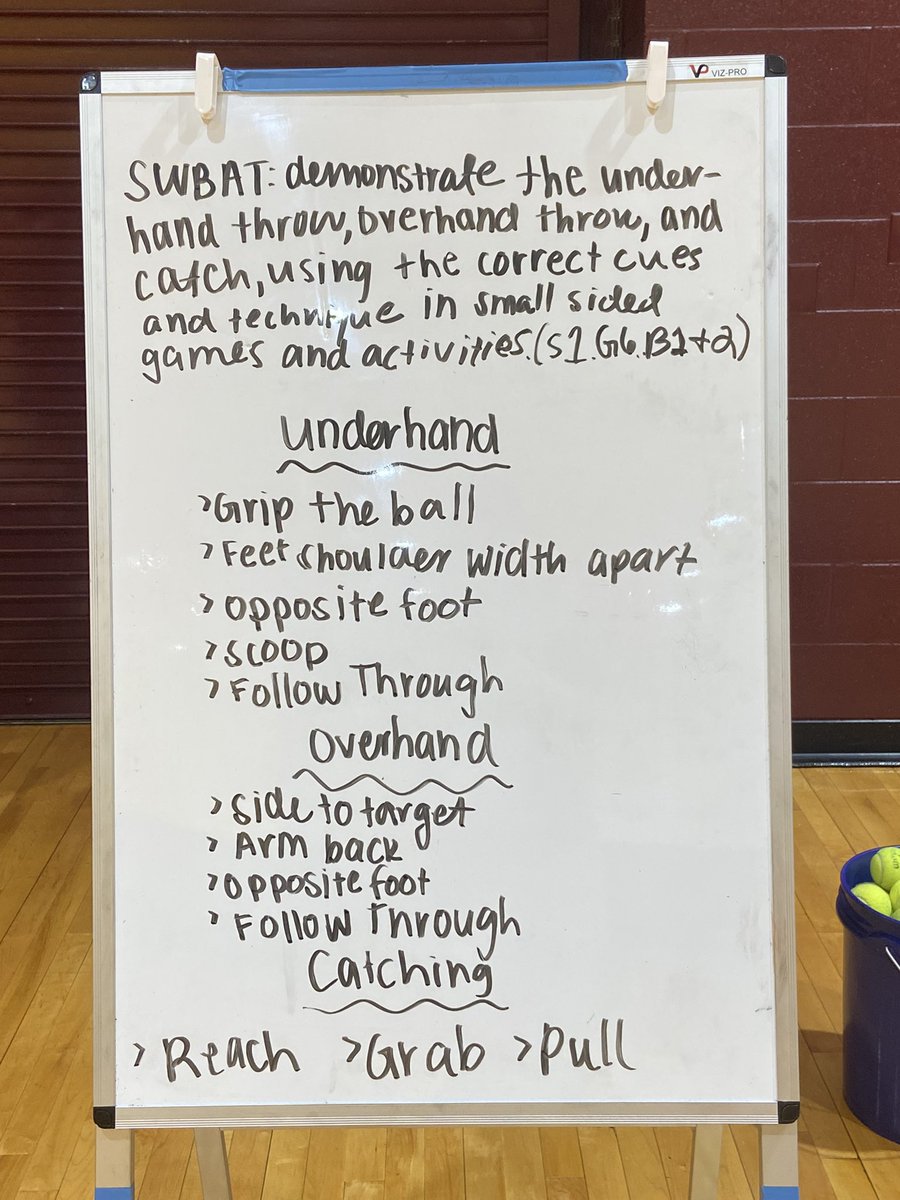 VP VIZ-PRO
SWBAT: demonstrate the under-
hand throw, overhand throw, and
catch, using the correct cues
and technique in small sided
games and activities. (S1.G6.B1+2)
Underhand
> Grip the ball
> Feet shoulder width apart
> opposite foot
> scoop
> Follow Through
Overhand
> side to target
> Arm back
> opposite foot
> Follow Through
Catching
> Reach > Grab > Pull